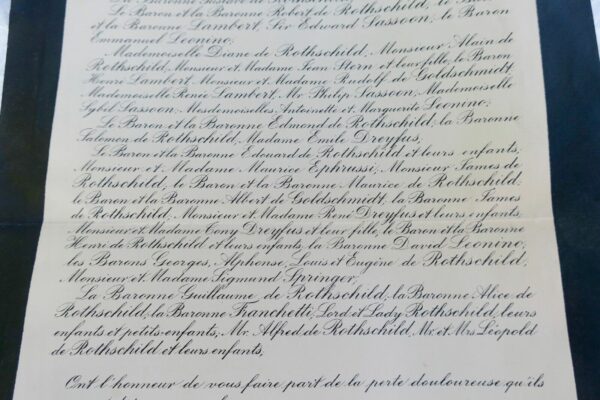 Le Baron et la Baronne Robert de Rothschild, le Baron
et la Baronne Lambert, Sir Edward Sassoon, le Baron
Emmanuel Leonino;
Mademoiselle Diane de Rothschild, Monsieur Alain de
Rothschild, Monsieur et Madame Jean Stern et leur fille, le Baron
Henri Lambert, Monsieur et Madame Rudolf de Goldschmidt,
Mademoiselle Renée Lambert, Mr. Philip Sassoon, Mademoiselle
Sybil Sassoon; Mesdemoiselles Antoinette et Marguerite Leonino;
Le Baron et la Baronne Edmond de Rothschild, la Baronne
Salomon de Rothschild, Madame Emile Dreyfus,
Le Baron et la Baronne Edouard de Rothschild et leurs enfants,
Monsieur et Madame Maurice Ephrussi, Monsieur James de
Rothschild, le Baron et la Baronne Maurice de Rothschild,
le Baron et la Baronne Albert de Goldschmidt, la Baronne James
de Rothschild, Monsieur et Madame René Dreyfus et leurs enfants,
Monsieur et Madame Tony Dreyfus et leur fille, le Baron et la Baronne
Henri de Rothschild et leurs enfants, la Baronne David Leonino,
les Barons Georges, Alphonse, Louis et Eugène de Rothschild,
Monsieur et Madame Sigmund Springer,
La Baronne Guillaume de Rothschild, la Baronne Alice de
Rothschild, la Baronne Franchetti, Lord et Lady Rothschild, leurs
enfants et petits-enfants, Mr. Alfred de Rothschild, Mr. et Mrs. Léopold
de Rothschild et leurs enfants,
Ont l'honneur de vous faire part de la perte douloureuse qu'ils